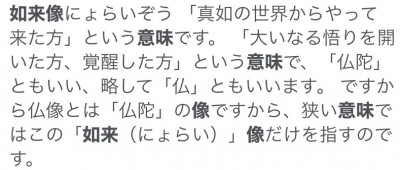 如来像にょらいぞう 「真如の世界からやって
来た方」という意味です。 「大いなる悟りを開
いた方、覚醒した方」という意味で、「仏陀」
ともいい、略して「仏」ともいいます。 ですか
ら仏像とは「仏陀」の像ですから、狭い意味で
はこの「如来（にょらい）」像だけを指すので
す。